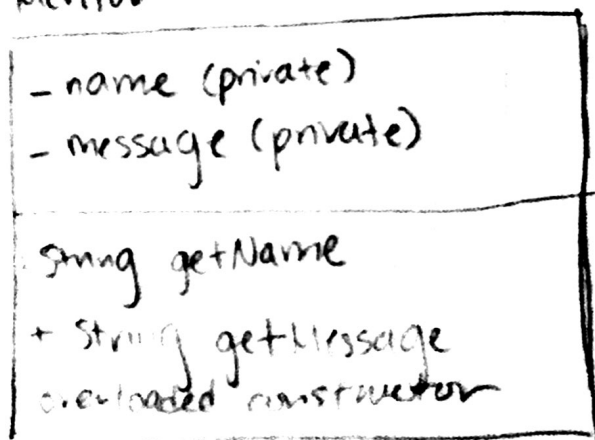 - name (private)
- message (private)
String getName
+ String getMessage
overloaded constructor